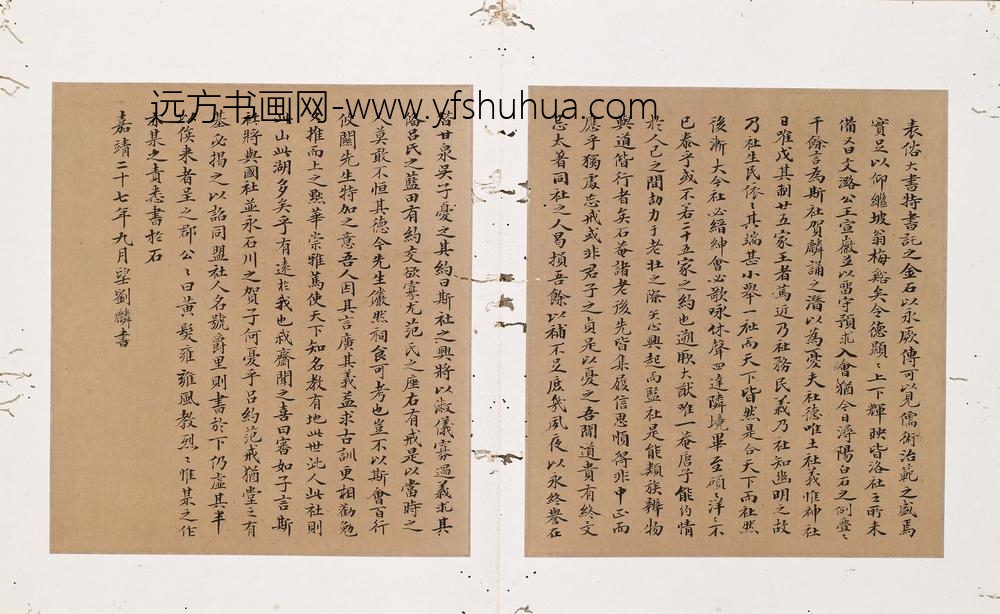 远方书画网-www.yfshuhua.com
表俗大書特書託之金石以永厥傳可以見儒術治範之盛焉
實足以仰繼坡翁梅谿矣今德顯〻上下輝映皆洛社之所未
備又曰文潞公王宣徽並以留守預求入會猶今日潯陽白石之例疊〻
千餘言為斯社賀麟誦之潛以為憂夫社德唯土社義惟神社
日唯戊其制廿五家王者篤近乃社務民義乃社知幽明之故
乃社生民依〻其端甚小舉一社而天下皆然是合天下而社然
後漸大今社必縉紳會必歌咏休聲四達隣境畢至碩洋〻不
已泰乎或不若二十五家之約也遡厥大猷唯一菴唐子能約情
於人己之間劼力于老壯之際矢心興起而監社是能類族辨物
與道偕行者矣石菴諸老後先皆集履信思順得非中正而
應乎獨處忘戒或非君子之貞是以憂之吾聞道貴有終文
忌太著同社之人曷損吾餘以補不足庶幾夙夜以永終譽在
昔甘泉吳子憂之其約曰斯社之興將以淑儀寡過義求其
俗呂氏之藍田有約交欲寡尤范氏之座右有戒是以當時之
人莫敢不恒其德今先生儼然祠食可考也豈不以斯會百行
攸關先生特加之意吾人因其言廣其義益求古訓更相勸勉
推而上之黜華崇雅篤使天下知名教有地此世此人此社則
此山此湖多矣乎有遠於我也戒齋聞之喜曰審如子言斯
社將與國社並永石川之賀子何憂乎呂約范戒猶堂之有
基必揭之以詔同盟社人名號爵里則書於下仍虛其半
以俟来者呈之郡公〻曰黃髮雍雍風教烈〻惟某之作
求某之責悉書於石
嘉靖二十七年九月望劉麟書